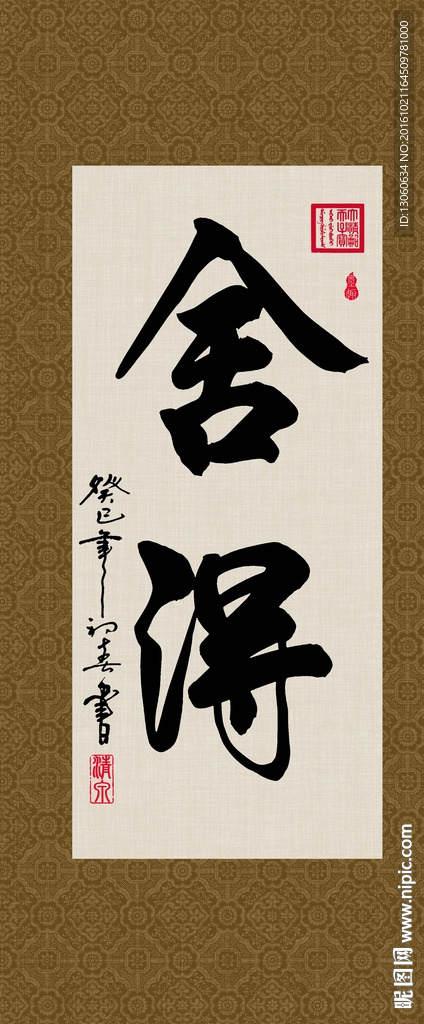 舍得
癸巳年初春書
清泉
ID:13060634 NO:20161021164509781000
昵图网 www.nipic.com